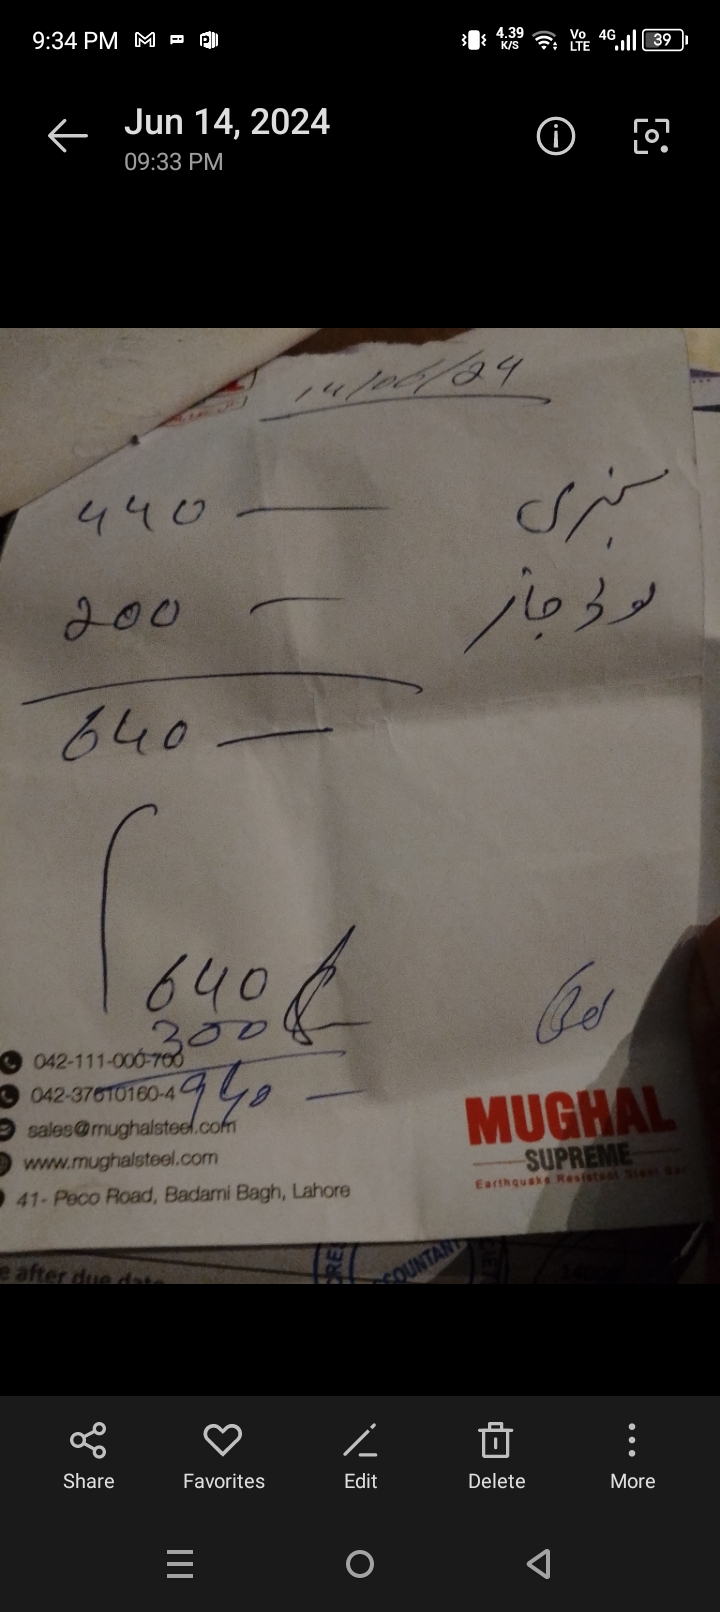 9:34 PM 4.39 K/S Vo LTE 4G 39
Jun 14, 2024
09:33 PM
14/06/24
440 — سبزی
200 — لوڈ جاز
640 —
640
300
940 —
042-111-000-700
042-37610160-4
sales@mughalsteel.com
www.mughalsteel.com
41- Peco Road, Badami Bagh, Lahore
MUGHAL
SUPREME
Earthquake Resistant Steel Bar
e after due date
COUNTANT
Share Favorites Edit Delete More